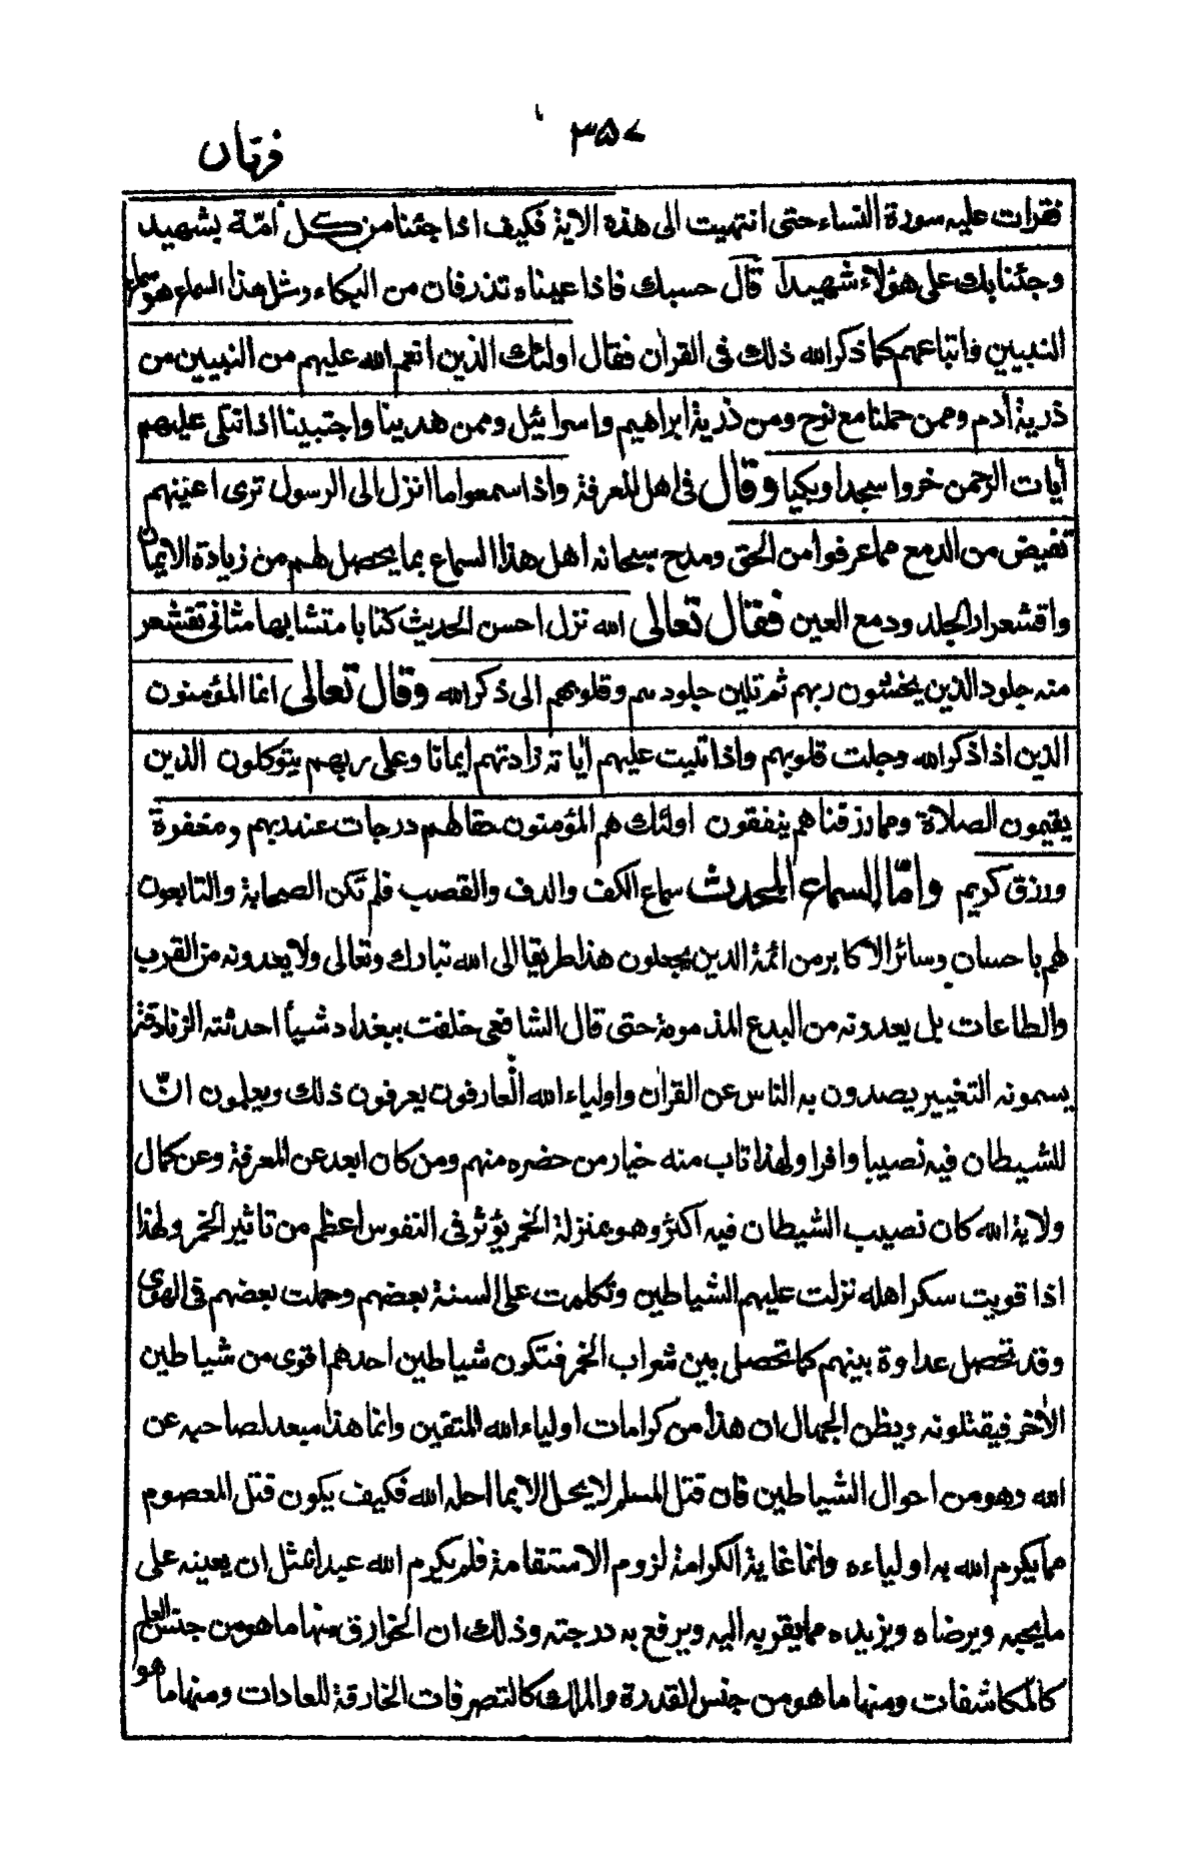 ۳۵۷
فرقان
فقرات عليه سورة النساء حتى انتهيت الى هذه الاية فكيف اذا جئنا من كل امّة بشهيد
وجئنا بك على هؤلاء شهيدا قال حسبك فاذا عيناه تذرفان من البكاء ومثل هذا السماع هو سماع
النبيين واتباعهم كما ذكر الله ذلك فى القران فقال اولئك الذين انعم الله عليهم من النبيين من
ذرية أدم وممن حملنا مع نوح ومن ذرية ابراهيم واسرائيل وممن هدينا واجتبينا اذا تتلى عليهم
أيات الرحمن خروا سجدا وبكيا وقال فى اهل المعرفة واذا سمعوا ما انزل الى الرسول ترى اعينهم
تفيض من الدمع مما عرفوا من الحق ومدح سبحانه اهل هذا السماع بما يحصل لهم من زيادة الايمان
واقشعرار الجلد ودمع العين فقال تعالى الله نزل احسن الحديث كتابا متشابها مثانى تقشعر
منه جلود الذين يخشون ربهم ثم تلين جلودهم وقلوبهم الى ذكر الله وقال تعالى انما المؤمنون
الذين اذا ذكر الله وجلت قلوبهم واذا تليت عليهم أياته زادتهم ايمانا وعلى ربهم يتوكلون الذين
يقيمون الصلاة ومما رزقناهم ينفقون اولئك هم المؤمنون حقا لهم درجات عند ربهم ومغفرة
ورزق كريم وامّا السماع المحدث سماع الكف والدف والقصب فلم تكن الصحابة والتابعون
لهم باحسان وسائر الاكابر من ائمة الدين يجعلون هذا طريقا الى الله تبارك وتعالى ولا يعدونه من القرب
والطاعات بل يعدونه من البدع المذمومة حتى قال الشافعى خلفت ببغداد شيأ احدثته الزنادقة
يسمونه التغيير يصدون به الناس عن القران واولياء الله العارفون يعرفون ذلك ويعلمون انّ
للشيطان فيه نصيبا وافرا ولهذا تاب منه خيار من حضره منهم ومن كان ابعد عن المعرفة وعن كمال
ولاية الله كان نصيب الشيطان فيه اكثر وهو بمنزلة الخمر يؤثر فى النفوس اعظم من تاثير الخمر ولهذا
اذا قويت سكر اهله نزلت عليهم الشياطين وتكلمت على السنة بعضهم وحملت بعضهم فى الهوى
وقد تحصل عداوة بينهم كما تحصل بين شعراب الخمر فتكون شياطين احدهم اقوى من شياطين
الأخر فيقتلونه ويظن الجهال ان هذا من كرامات اولياء الله المتقين وانما هذا مبعد لصاحبه عن
الله وهو من احوال الشياطين فان قتل المسلم لا يحل الا بما احله الله فكيف يكون قتل المعصوم
مما يكرم الله به اولياءه وانما غاية الكرامة لزوم الاستقامة فلم يكرم الله عبدا بمثل ان يعينه على
ما يحبه ويرضاه ويزيده مما يقربه اليه ويرفع به درجته وذلك ان الخوارق منها ما هو من جنس العلم
كالمكاشفات ومنها ما هو من جنس القدرة والملك كالتصرفات الخارقة للعادات ومنها ما هو